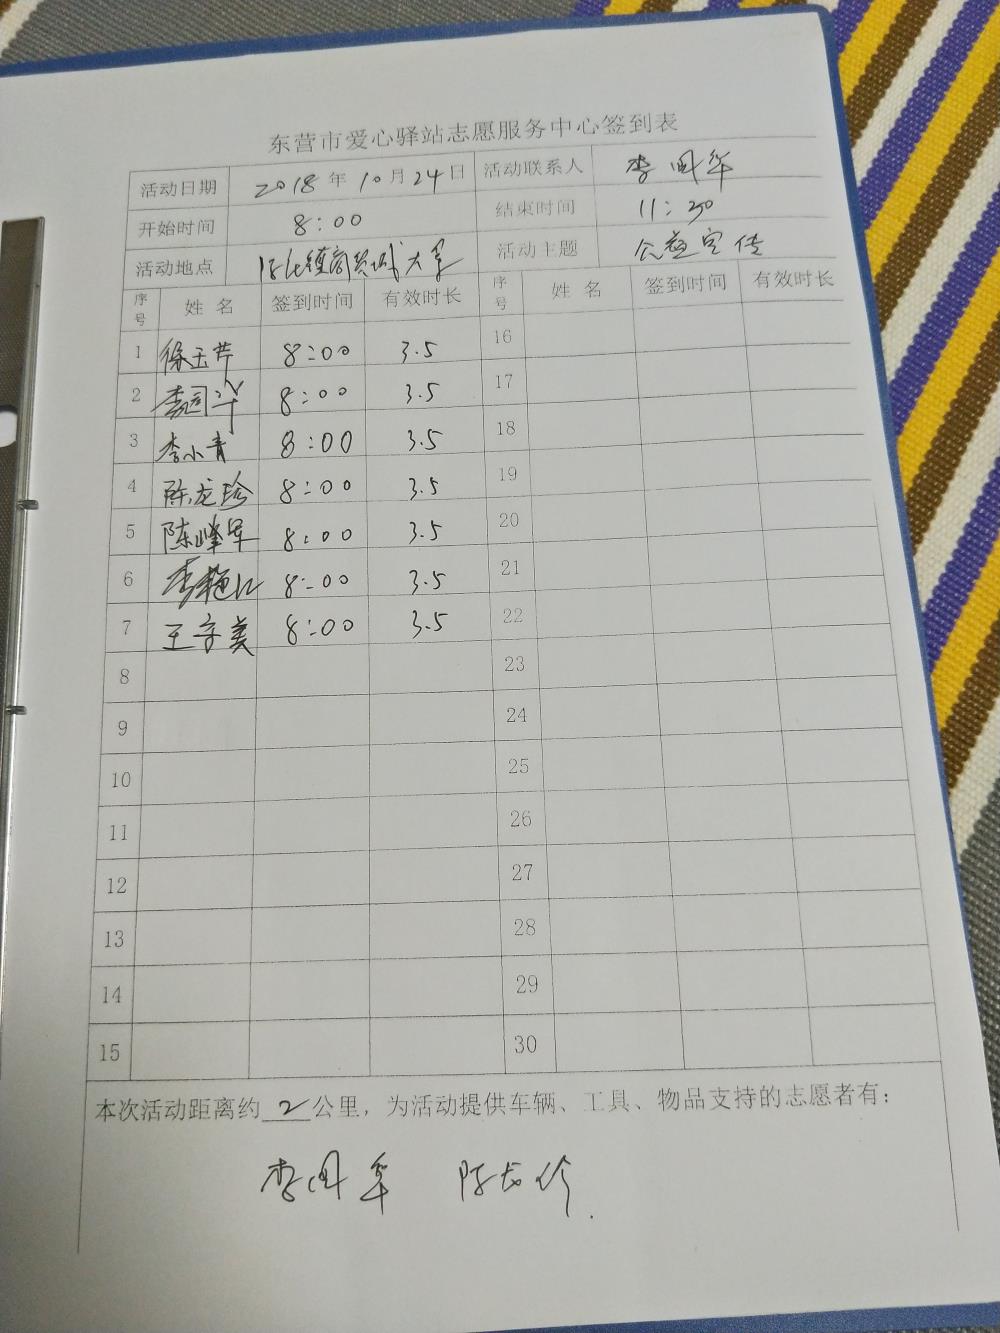 东营市爱心驿站志愿服务中心签到表
活动日期 2018年10月24日 活动联系人 李国华
开始时间 8:00 结束时间 11:30
活动地点 镇商贸城大 活动主题 公益宣传
序号 姓名 签到时间 有效时长 序号 姓名 签到时间 有效时长
1 徐玉芹 8:00 3.5 16
2 李国华 8:00 3.5 17
3 李小青 8:00 3.5 18
4 陈龙珍 8:00 3.5 19
5 陈峰军 8:00 3.5 20
6 李艳 8:00 3.5 21
7 王守美 8:00 3.5 22
8 23
9 24
10 25
11 26
12 27
13 28
14 29
15 30
本次活动距离约2公里，为活动提供车辆、工具、物品支持的志愿者有：
李国华 陈龙珍